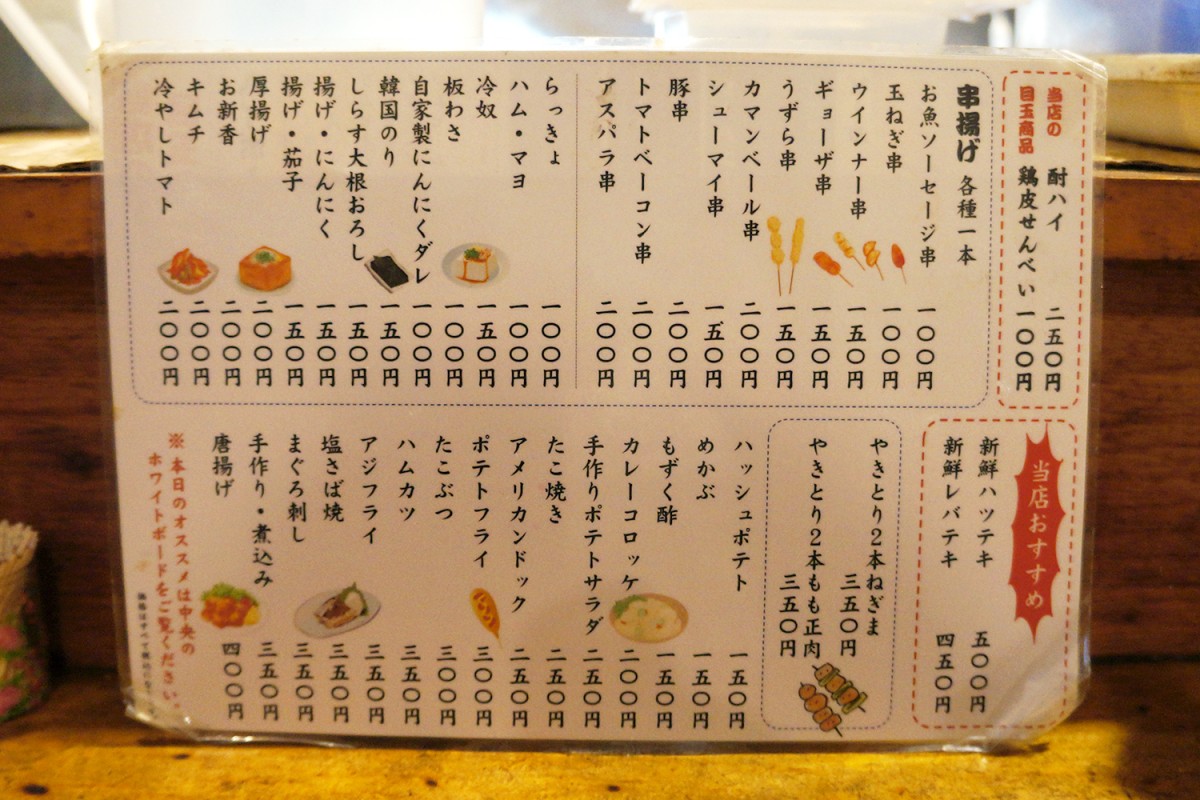 当店の
目玉商品
酎ハイ 二五〇円
鶏皮せんべい 一〇〇円
串揚げ 各種一本
お魚ソーセージ串 一〇〇円
玉ねぎ串 一〇〇円
ウインナー串 一五〇円
ギョーザ串 一五〇円
うずら串 一五〇円
カマンベール串 二〇〇円
シューマイ串 一五〇円
豚串 二〇〇円
トマトベーコン串 二〇〇円
アスパラ串 二〇〇円
らっきょ 一〇〇円
ハム・マヨ 一〇〇円
冷奴 一五〇円
板わさ 一〇〇円
自家製にんにくダレ 一〇〇円
韓国のり 一五〇円
しらす大根おろし 一五〇円
揚げ・にんにく 一五〇円
揚げ・茄子 一五〇円
厚揚げ 二〇〇円
お新香 二〇〇円
キムチ 二〇〇円
冷やしトマト 二〇〇円
当店おすすめ
新鮮ハツテキ 五〇〇円
新鮮レバテキ 四五〇円
やきとり2本ねぎま
三五〇円
やきとり2本もも正肉
三五〇円
ハッシュポテト 一五〇円
めかぶ 一五〇円
もずく酢 一五〇円
カレーコロッケ 二〇〇円
手作りポテトサラダ 二五〇円
たこ焼き 二五〇円
アメリカンドック 二五〇円
ポテトフライ 三〇〇円
たこぶつ 三〇〇円
ハムカツ 三五〇円
アジフライ 三五〇円
塩さば焼 三五〇円
まぐろ刺し 三五〇円
手作り・煮込み 三五〇円
唐揚げ 四〇〇円
※本日のオススメは中央の
ホワイトボードをご覧ください